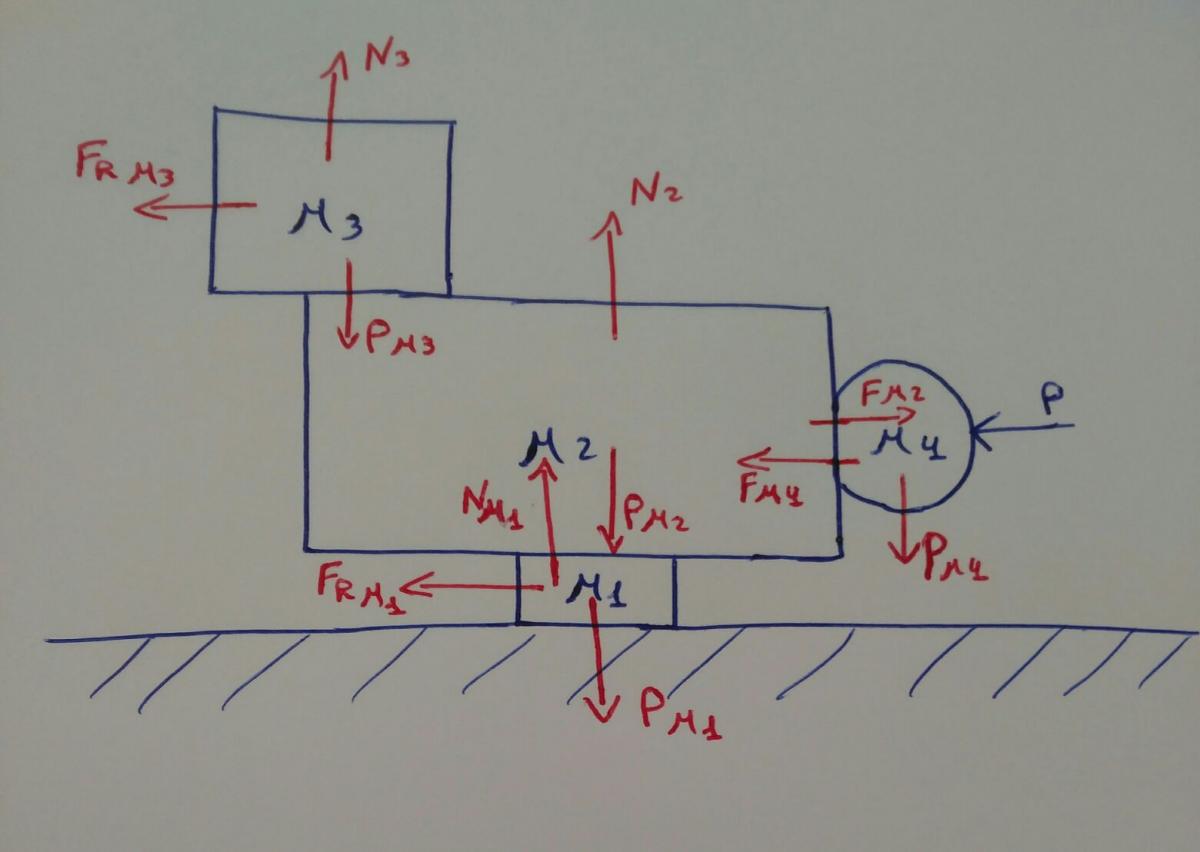 N3
FR M3
M3
N2
PM3
P
FM2
M4
M2
FM4
NM1
PM2
PM4
FR M1
M1
PM1